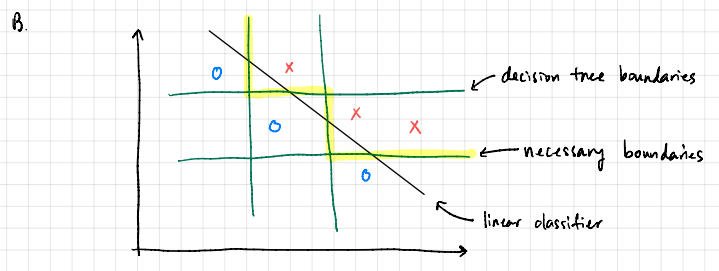 B.
O
X
decision tree boundaries
O
X
X
necessary boundaries
O
linear classifier